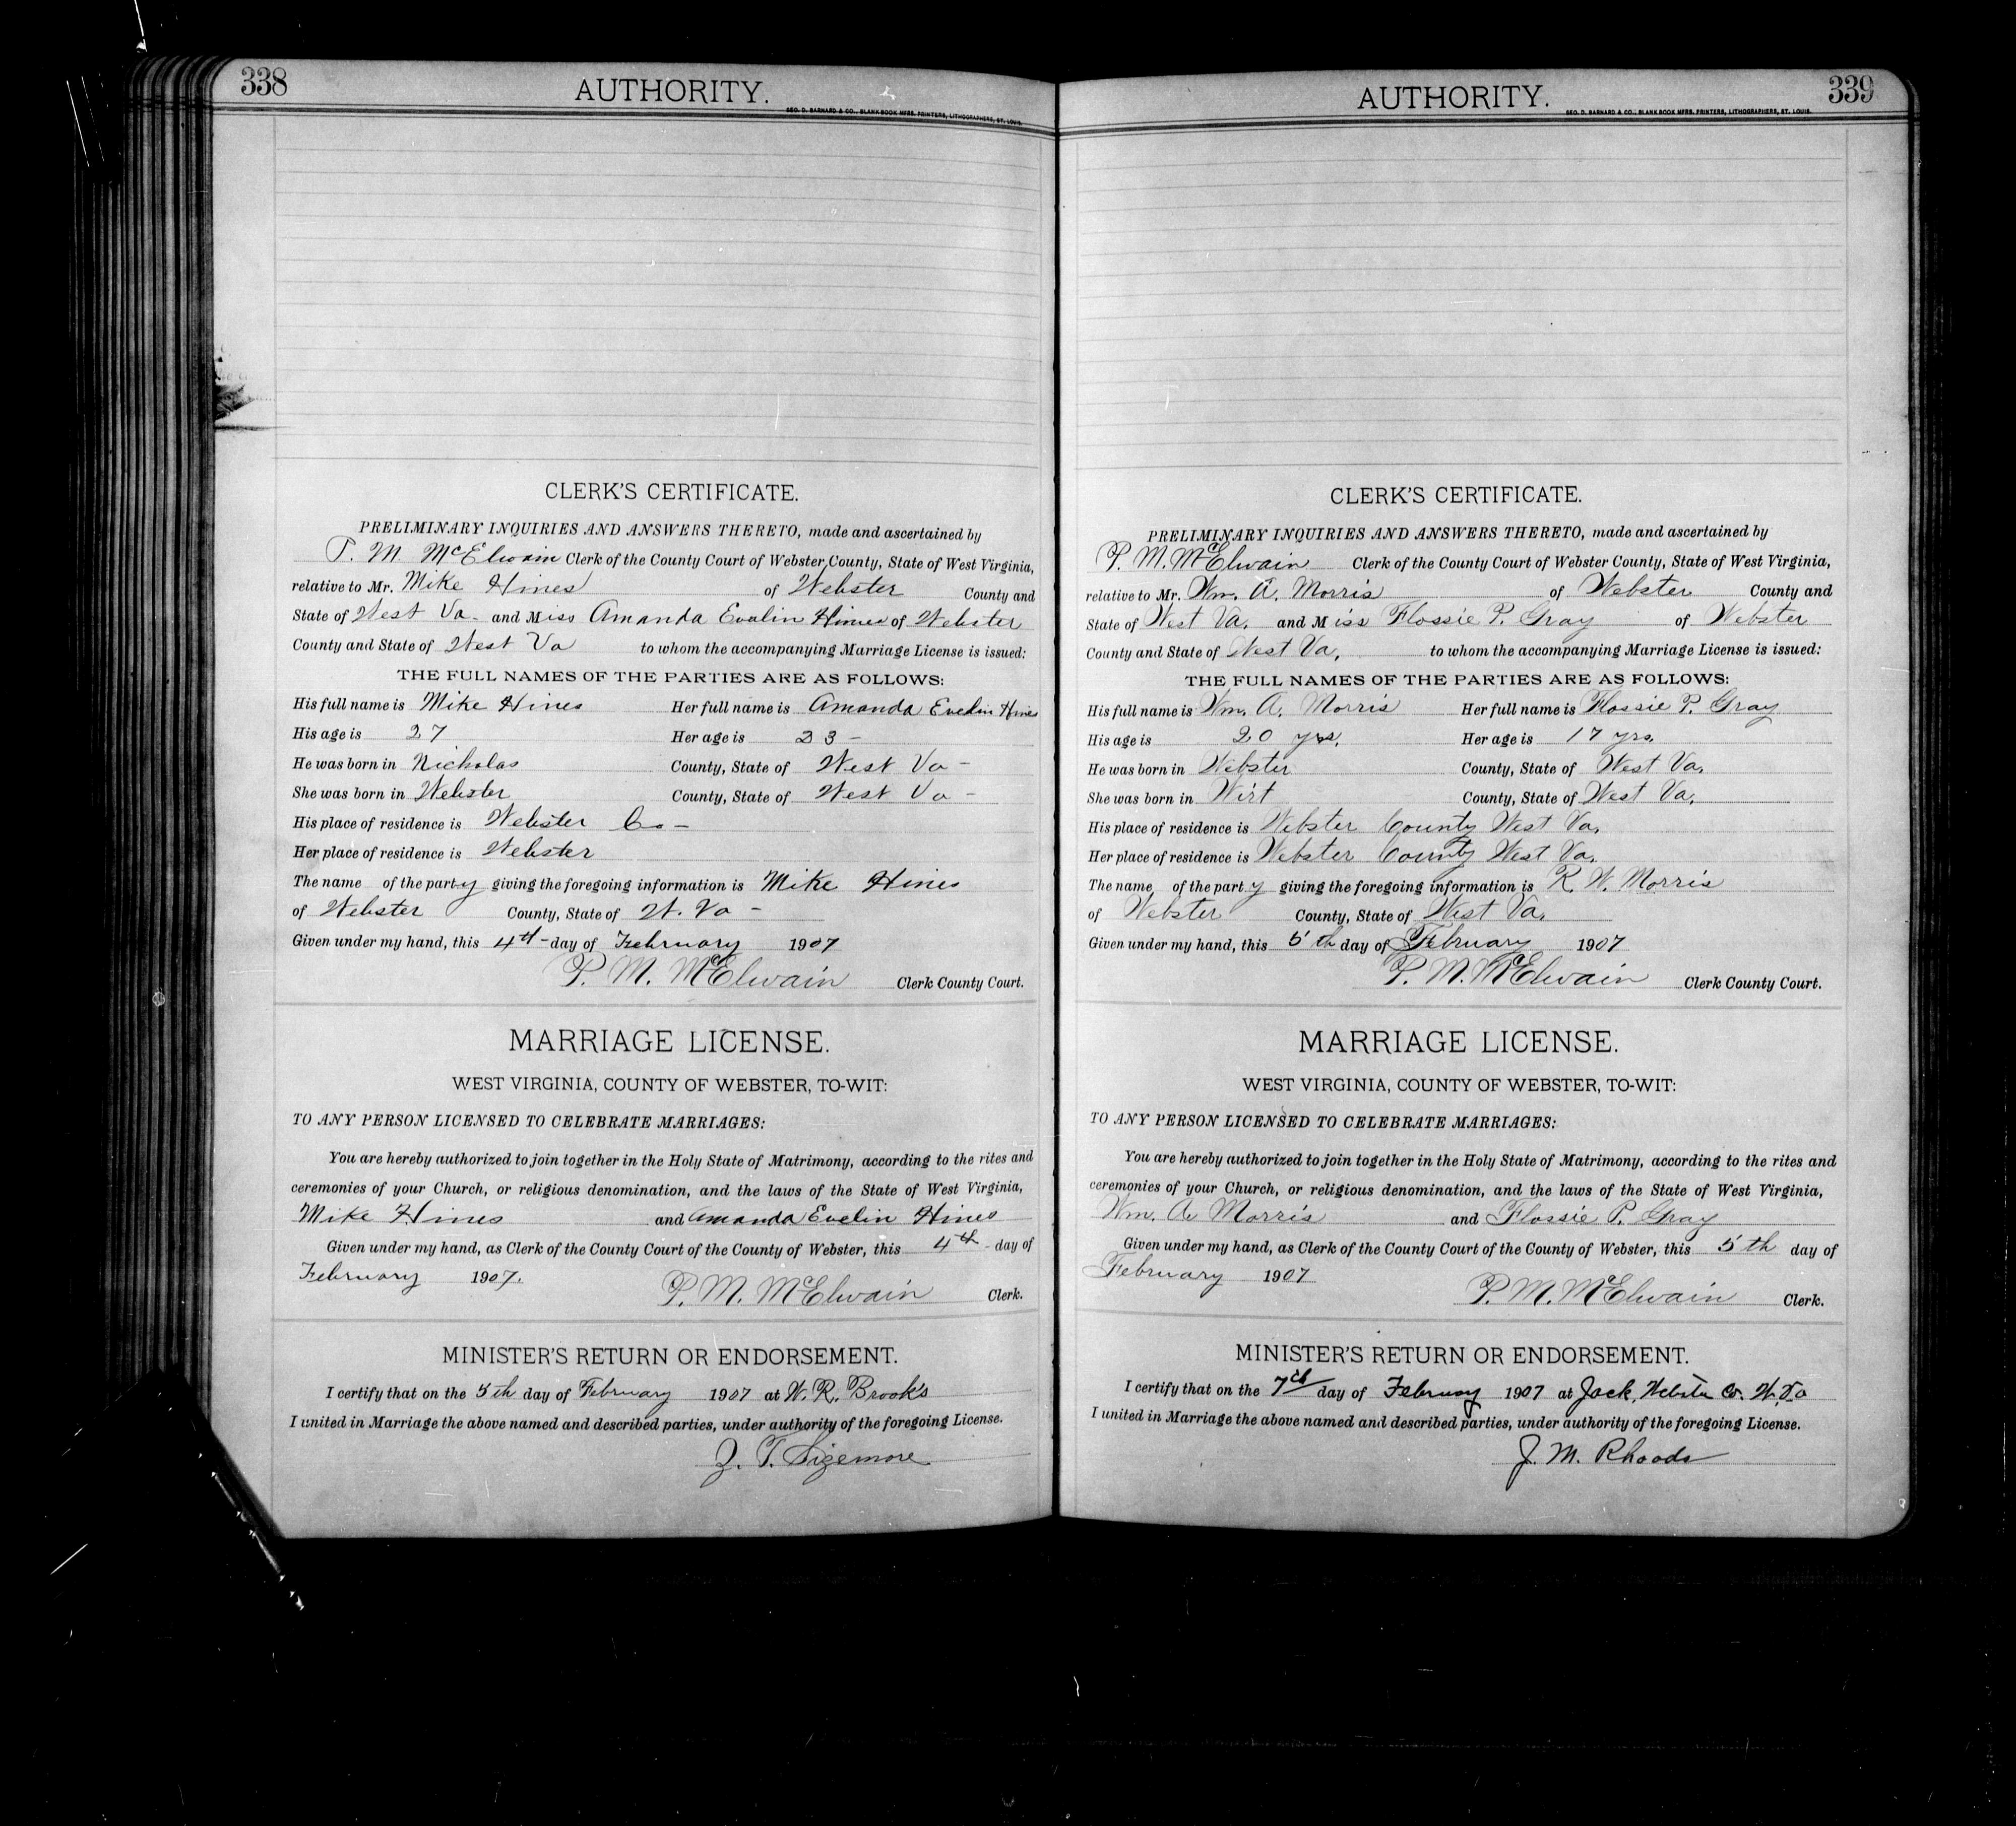 338
AUTHORITY.
GEO. D. BARNARD & CO., BLANK BOOK MFRS. PRINTERS, LITHOGRAPHERS, ST. LOUIS.
CLERK'S CERTIFICATE.
PRELIMINARY INQUIRIES AND ANSWERS THERETO, made and ascertained by
P. M. McElwain Clerk of the County Court of Webster County, State of West Virginia,
relative to Mr. Mike Hines of Webster County and
State of West Va. and Miss Amanda Evalin Hines of Webster
County and State of West Va to whom the accompanying Marriage License is issued:
THE FULL NAMES OF THE PARTIES ARE AS FOLLOWS:
His full name is Mike Hines Her full name is Amanda Evelin Hines
His age is 27 Her age is 23 -
He was born in Nicholas County, State of West Va -
She was born in Webster County, State of West Va -
His place of residence is Webster Co -
Her place of residence is Webster
The name of the party giving the foregoing information is Mike Hines
of Webster County, State of W. Va -
Given under my hand, this 4th - day of February 1907
P. M. McElwain Clerk County Court.
MARRIAGE LICENSE.
WEST VIRGINIA, COUNTY OF WEBSTER, TO-WIT:
TO ANY PERSON LICENSED TO CELEBRATE MARRIAGES:
You are hereby authorized to join together in the Holy State of Matrimony, according to the rites and
ceremonies of your Church, or religious denomination, and the laws of the State of West Virginia,
Mike Hines and Amanda Evelin Hines
Given under my hand, as Clerk of the County Court of the County of Webster, this 4th - day of
February 1907. P. M. McElwain Clerk.
MINISTER'S RETURN OR ENDORSEMENT.
I certify that on the 5th day of February 1907 at W. R. Brook's
I united in Marriage the above named and described parties, under authority of the foregoing License.
J. T. Sizemore
339
AUTHORITY.
GEO. D. BARNARD & CO., BLANK BOOK MFRS. PRINTERS, LITHOGRAPHERS, ST. LOUIS.
CLERK'S CERTIFICATE.
PRELIMINARY INQUIRIES AND ANSWERS THERETO, made and ascertained by
P. M. McElwain Clerk of the County Court of Webster County, State of West Virginia,
relative to Mr. Wm. A. Morris of Webster County and
State of West Va. and Miss Flossie P. Gray of Webster
County and State of West Va. to whom the accompanying Marriage License is issued:
THE FULL NAMES OF THE PARTIES ARE AS FOLLOWS:
His full name is Wm. A. Morris Her full name is Flossie P. Gray
His age is 20 yrs. Her age is 17 yrs.
He was born in Webster County, State of West Va.
She was born in Wirt County, State of West Va.
His place of residence is Webster County West Va.
Her place of residence is Webster County West Va.
The name of the party giving the foregoing information is R. W. Morris
of Webster County, State of West Va.
Given under my hand, this 5th day of February 1907
P. M. McElwain Clerk County Court.
MARRIAGE LICENSE.
WEST VIRGINIA, COUNTY OF WEBSTER, TO-WIT:
TO ANY PERSON LICENSED TO CELEBRATE MARRIAGES:
You are hereby authorized to join together in the Holy State of Matrimony, according to the rites and
ceremonies of your Church, or religious denomination, and the laws of the State of West Virginia,
Wm. A. Morris and Flossie P. Gray
Given under my hand, as Clerk of the County Court of the County of Webster, this 5th day of
February 1907 P. M. McElwain Clerk.
MINISTER'S RETURN OR ENDORSEMENT.
I certify that on the 7th day of February 1907 at Jack, Webster Co. W. Va
I united in Marriage the above named and described parties, under authority of the foregoing License.
J. M. Rhoads